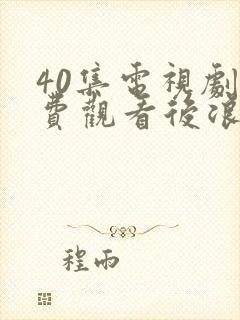 40集電視劇
費觀看後浪
程雨